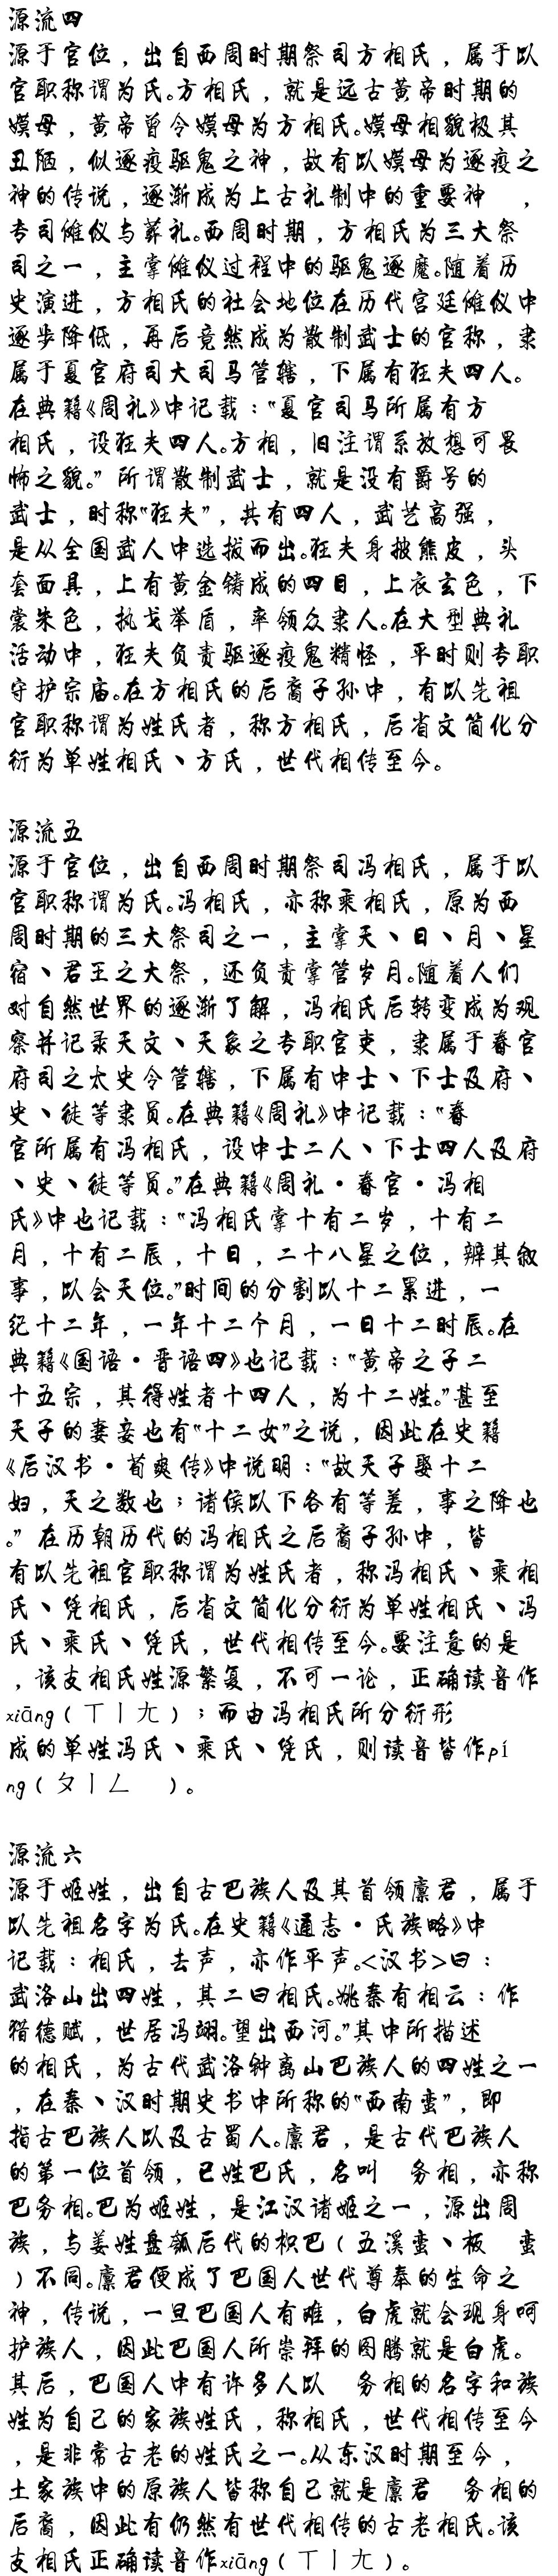 源流四
源于官位，出自西周时期祭司方相氏，属于以
官职称谓为氏。方相氏，就是远古黄帝时期的
嫫母，黄帝曾令嫫母为方相氏。嫫母相貌极其
丑陋，似逐疫驱鬼之神，故有以嫫母为逐疫之
神的传说，逐渐成为上古礼制中的重要神　，
专司傩仪与葬礼。西周时期，方相氏为三大祭
司之一，主掌傩仪过程中的驱鬼逐魔。随着历
史演进，方相氏的社会地位在历代宫廷傩仪中
逐步降低，再后竟然成为散制武士的官称，隶
属于夏官府司大司马管辖，下属有狂夫四人。
在典籍《周礼》中记载："夏官司马所属有方
相氏，设狂夫四人。方相，旧注谓系放想可畏
怖之貌。" 所谓散制武士，就是没有爵号的
武士，时称"狂夫"，共有四人，武艺高强，
是从全国武人中选拔而出。狂夫身披熊皮，头
套面具，上有黄金铸成的四目，上衣玄色，下
裳朱色，执戈举盾，率领众隶人。在大型典礼
活动中，狂夫负责驱逐疫鬼精怪，平时则专职
守护宗庙。在方相氏的后裔子孙中，有以先祖
官职称谓为姓氏者，称方相氏，后省文简化分
衍为单姓相氏、方氏，世代相传至今。

源流五
源于官位，出自西周时期祭司冯相氏，属于以
官职称谓为氏。冯相氏，亦称乘相氏，原为西
周时期的三大祭司之一，主掌天、日、月、星
宿、君王之大祭，还负责掌管岁月。随着人们
对自然世界的逐渐了解，冯相氏后转变成为观
察并记录天文、天象之专职官吏，隶属于春官
府司之太史令管辖，下属有中士、下士及府、
史、徒等隶员。在典籍《周礼》中记载："春
官所属有冯相氏，设中士二人、下士四人及府
、史、徒等员。"在典籍《周礼·春官·冯相
氏》中也记载："冯相氏掌十有二岁，十有二
月，十有二辰，十日，二十八星之位，辨其叙
事，以会天位。"时间的分割以十二累进，一
纪十二年，一年十二个月，一日十二时辰。在
典籍《国语·晋语四》也记载："黄帝之子二
十五宗，其得姓者十四人，为十二姓。"甚至
天子的妻妾也有"十二女"之说，因此在史籍
《后汉书·荀爽传》中说明："故天子娶十二
妇，天之数也；诸侯以下各有等差，事之降也
。" 在历朝历代的冯相氏之后裔子孙中，皆
有以先祖官职称谓为姓氏者，称冯相氏、乘相
氏、凭相氏，后省文简化分衍为单姓相氏、冯
氏、乘氏、凭氏，世代相传至今。要注意的是
，该支相氏姓源繁复，不可一论，正确读音作
xiāng（ㄒㄧㄤ）；而由冯相氏所分衍形
成的单姓冯氏、乘氏、凭氏，则读音皆作pí
ng（ㄆㄧㄥ　）。

源流六
源于姬姓，出自古巴族人及其首领廪君，属于
以先祖名字为氏。在史籍《通志·氏族略》中
记载：相氏，去声，亦作平声。<汉书>曰：
武洛山出四姓，其二曰相氏。姚秦有相云：作
猎德赋，世居冯翊。望出西河。"其中所描述
的相氏，为古代武洛钟离山巴族人的四姓之一
，在秦、汉时期史书中所称的"西南蛮"，即
指古巴族人以及古蜀人。廪君，是古代巴族人
的第一位首领，巳姓巴氏，名叫　务相，亦称
巴务相。巴为姬姓，是江汉诸姬之一，源出周
族，与姜姓盘瓠后代的枳巴（五溪蛮、板　蛮
）不同。廪君便成了巴国人世代尊奉的生命之
神，传说，一旦巴国人有难，白虎就会现身呵
护族人，因此巴国人所崇拜的图腾就是白虎。
其后，巴国人中有许多人以　务相的名字和族
姓为自己的家族姓氏，称相氏，世代相传至今
，是非常古老的姓氏之一。从东汉时期至今，
土家族中的原族人皆称自己就是廪君　务相的
后裔，因此有仍然有世代相传的古老相氏。该
支相氏正确读音作xiāng（ㄒㄧㄤ）。